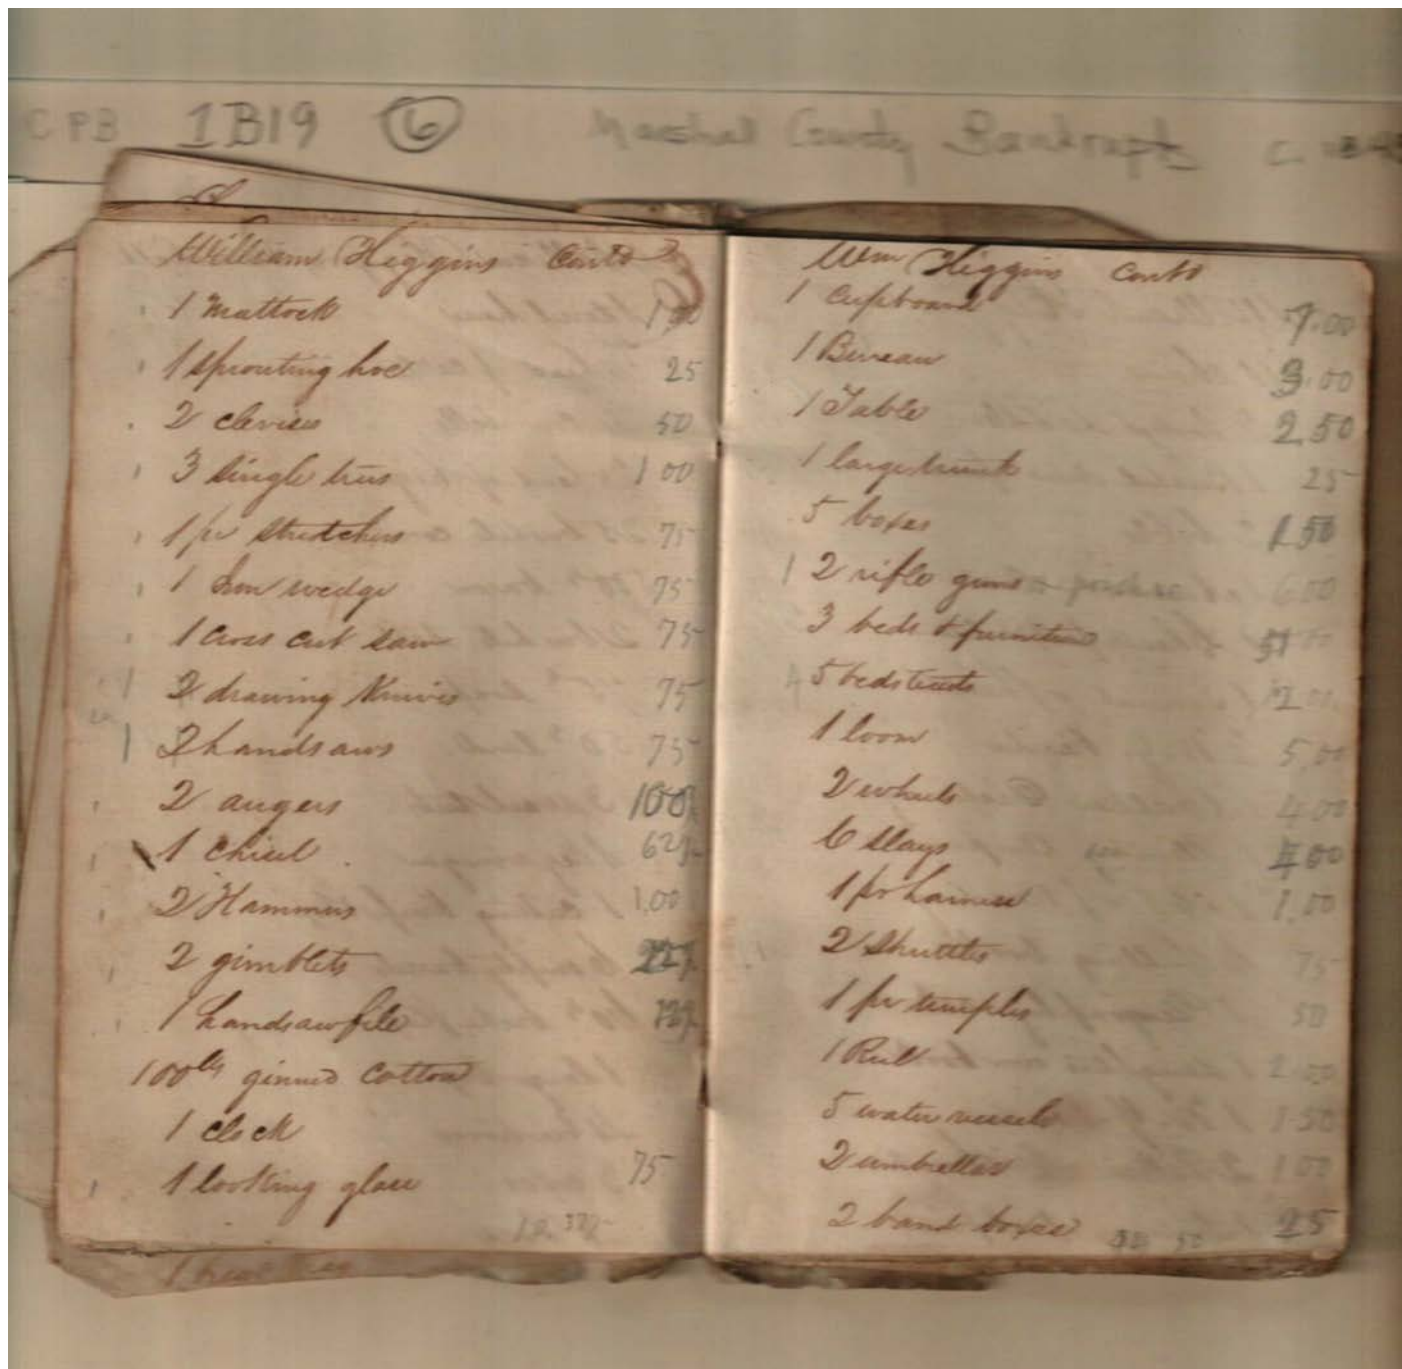 CPB 1B19 6 Marshal County Bankrupts
William Higgins Contd
1 Mattock
1 sprouting hoe 25
2 clevises 50
3 single trees 1 00
1 pr stretchers 75
1 Iron wedge 75
1 cross cut saw 75
2 drawing Knives 75
2 handsaws 75
2 augers 100
1 chisel 62½
2 Hammers 1,00
2 gimblets
1 handsaw file 12½
100 lbs ginned cotton
1 clock
1 looking glass 75
Wm Higgins Contd
1 Cupboard 7.00
1 Bureau 3.00
1 Table 2.50
1 large trunk 25
5 boxes 1 50
1 2 rifle guns 6.00
3 beds & furniture
5 bedsteads 12.00
1 loom 5,00
2 wheels 4.00
6 slays 00
1 pr harness 1.00
2 Shuttles 75
1 pr temples 50
1 Reel 2.00
5 water vessels 1.50
2 umbrellas 1 00
2 band boxes 25